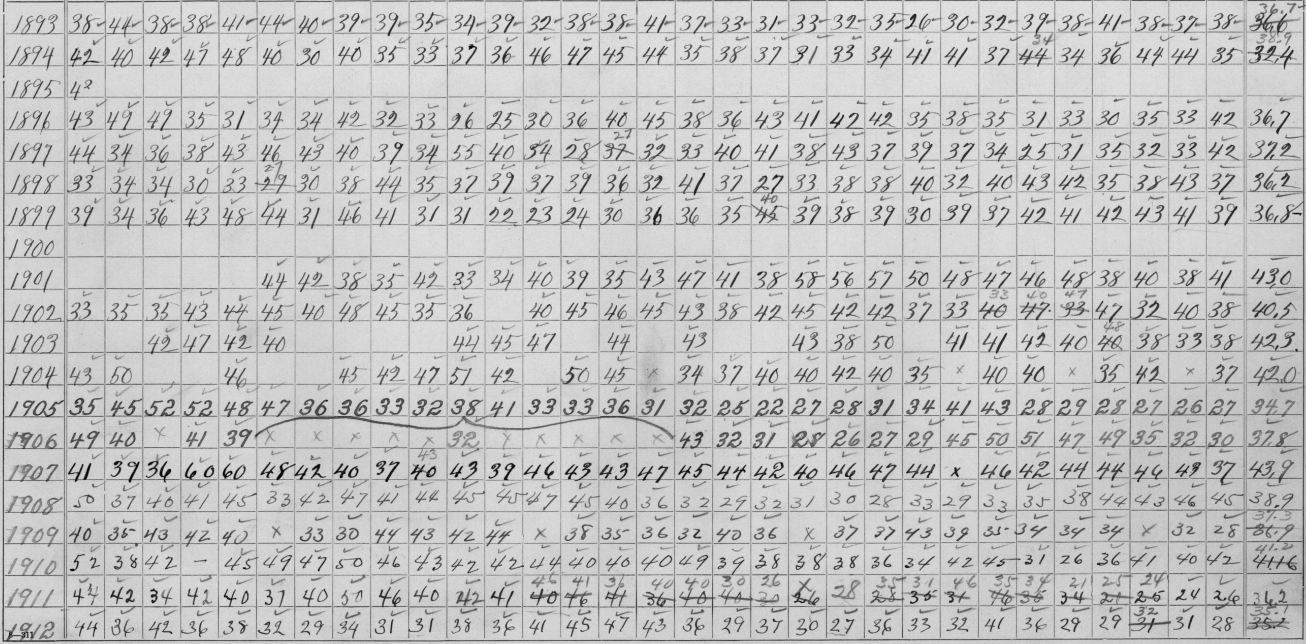 1893 38 44 38 38 41 44 40 39 39 35 34 39 32 38 38 41 37 33 31 33 32 35 26 30 32 39 38 41 38 37 38 36.6 36.7
1894 42 40 42 47 48 40 30 40 35 33 37 36 46 47 45 44 35 38 37 31 33 34 41 41 37 44 34 34 36 44 44 35 32.4 38.9
1895 42
1896 43 49 49 35 31 34 34 42 32 33 26 25 30 36 40 45 38 36 43 41 42 42 35 38 35 31 33 30 35 33 42 36.7
1897 44 34 36 38 43 46 43 40 39 34 55 40 34 28 37 27 32 33 40 41 38 43 37 39 37 34 25 31 35 32 33 42 37.2
1898 33 34 34 30 33 29 27 30 38 44 35 37 39 37 39 36 32 41 37 27 33 38 38 40 32 40 43 42 35 38 43 37 36.2
1899 39 34 36 43 48 44 31 46 41 31 31 22 23 24 30 36 36 35 45 40 39 38 39 30 39 37 42 41 42 43 41 39 36.8
1900
1901 44 42 38 35 42 33 34 40 39 35 43 47 41 38 58 56 57 50 48 47 46 48 38 40 38 41 43.0
1902 33 35 35 43 44 45 40 48 45 35 36 40 45 46 45 43 38 42 45 42 42 37 33 40 33 47 40 33 47 47 32 40 38 40.5
1903 42 47 42 40 44 45 47 44 43 43 38 50 41 41 42 40 40 48 38 33 38 42.3
1904 43 50 46 45 42 47 51 42 50 45 x 34 37 40 40 42 40 35 x 40 40 x 35 42 x 37 42.0
1905 35 45 52 52 48 47 36 36 33 32 38 41 33 33 36 31 32 25 22 27 28 31 34 41 43 28 29 28 27 26 27 34.7
1906 49 40 x 41 39 x x x x x 32 x x x x x 43 32 31 28 26 27 29 45 50 51 47 49 35 32 30 37.8
1907 41 39 36 60 60 48 42 40 37 40 43 43 39 46 43 43 47 45 44 42 40 46 47 44 x 46 42 44 44 46 48 37 43.9
1908 50 37 40 41 45 33 42 47 41 44 45 45 47 45 40 36 32 29 32 31 30 28 33 29 33 35 38 44 43 46 45 38.9
1909 40 35 43 42 40 x 33 30 44 43 42 44 x 38 35 36 32 40 36 x 37 37 43 39 35 34 34 34 x 32 28 36.9 37.3
1910 52 38 42 - 45 49 47 50 46 43 42 42 44 40 40 40 49 39 38 38 38 36 34 42 45 31 26 36 41 40 42 41.6 41.2
1911 44 42 34 42 40 37 40 50 46 40 42 41 40 46 46 41 41 36 36 40 40 40 40 30 30 26 26 x 28 28 35 35 31 31 46 46 35 35 34 34 21 21 25 25 24 24 26 36.2
1912 44 36 42 36 38 32 29 34 31 31 38 36 41 45 47 43 36 29 37 30 27 36 33 32 41 36 29 29 31 32 31 28 35.2 35.1